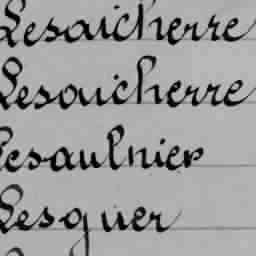 Lesaicherre
Lesaicherre
Lesaulnier
Lesguer